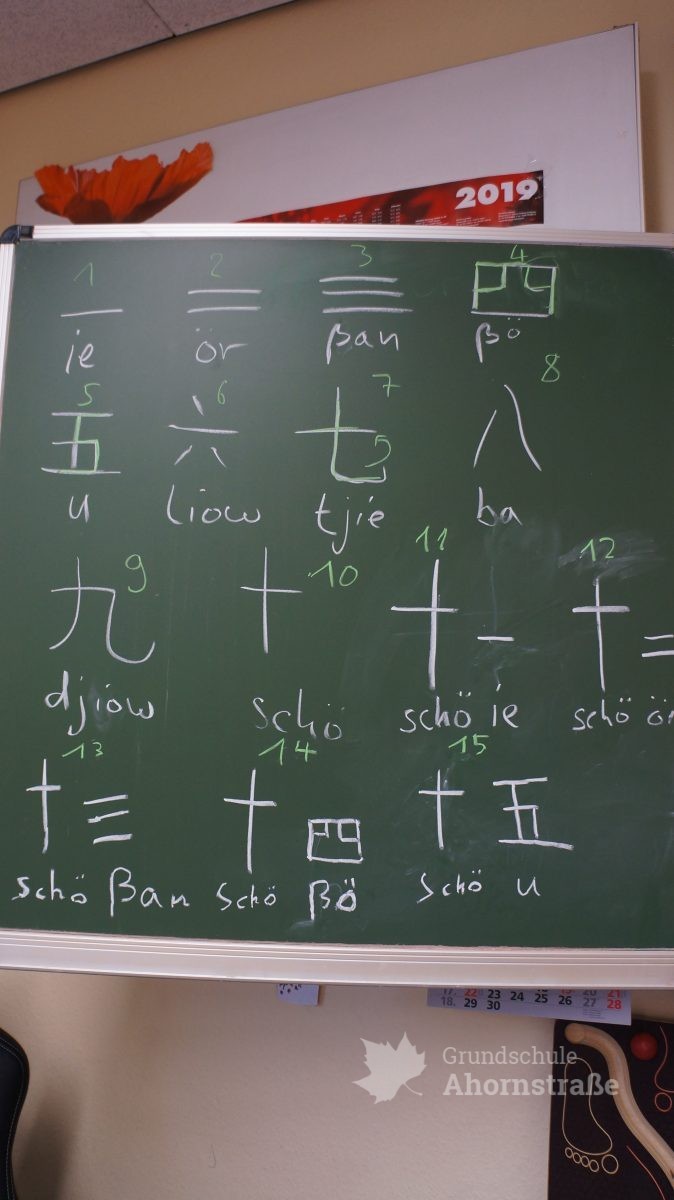 2019
1 2 3 4
一 二 三 四
ie ör ßan ßö
5 6 7 8
五 六 七 八
u liow tjie ba
9 10 11 12
九 十 十一 十二
djiow schö schö ie schö ör
13 14 15
十三 十四 十五
schö ßan schö ßö schö u
17. 22 23 24 25 26 27 28
18. 29 30
Grundschule
Ahornstraße